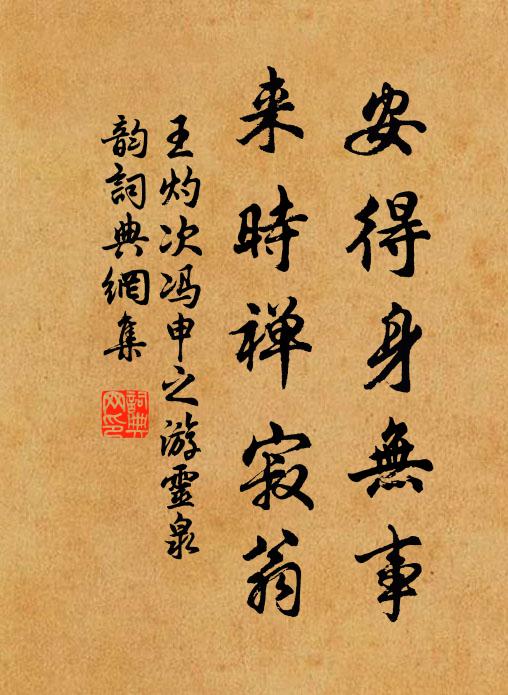 安得身無事
来時禅寂翁
王灼次冯申之游靈泉
韵詞典網集
詞典
网印